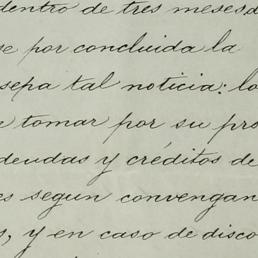 dentro de tres meses d
se por concluida la
sepa tal noticia: lo
tomar por su pro
deudas y créditos de
es segun convengan
s, y en caso de disco